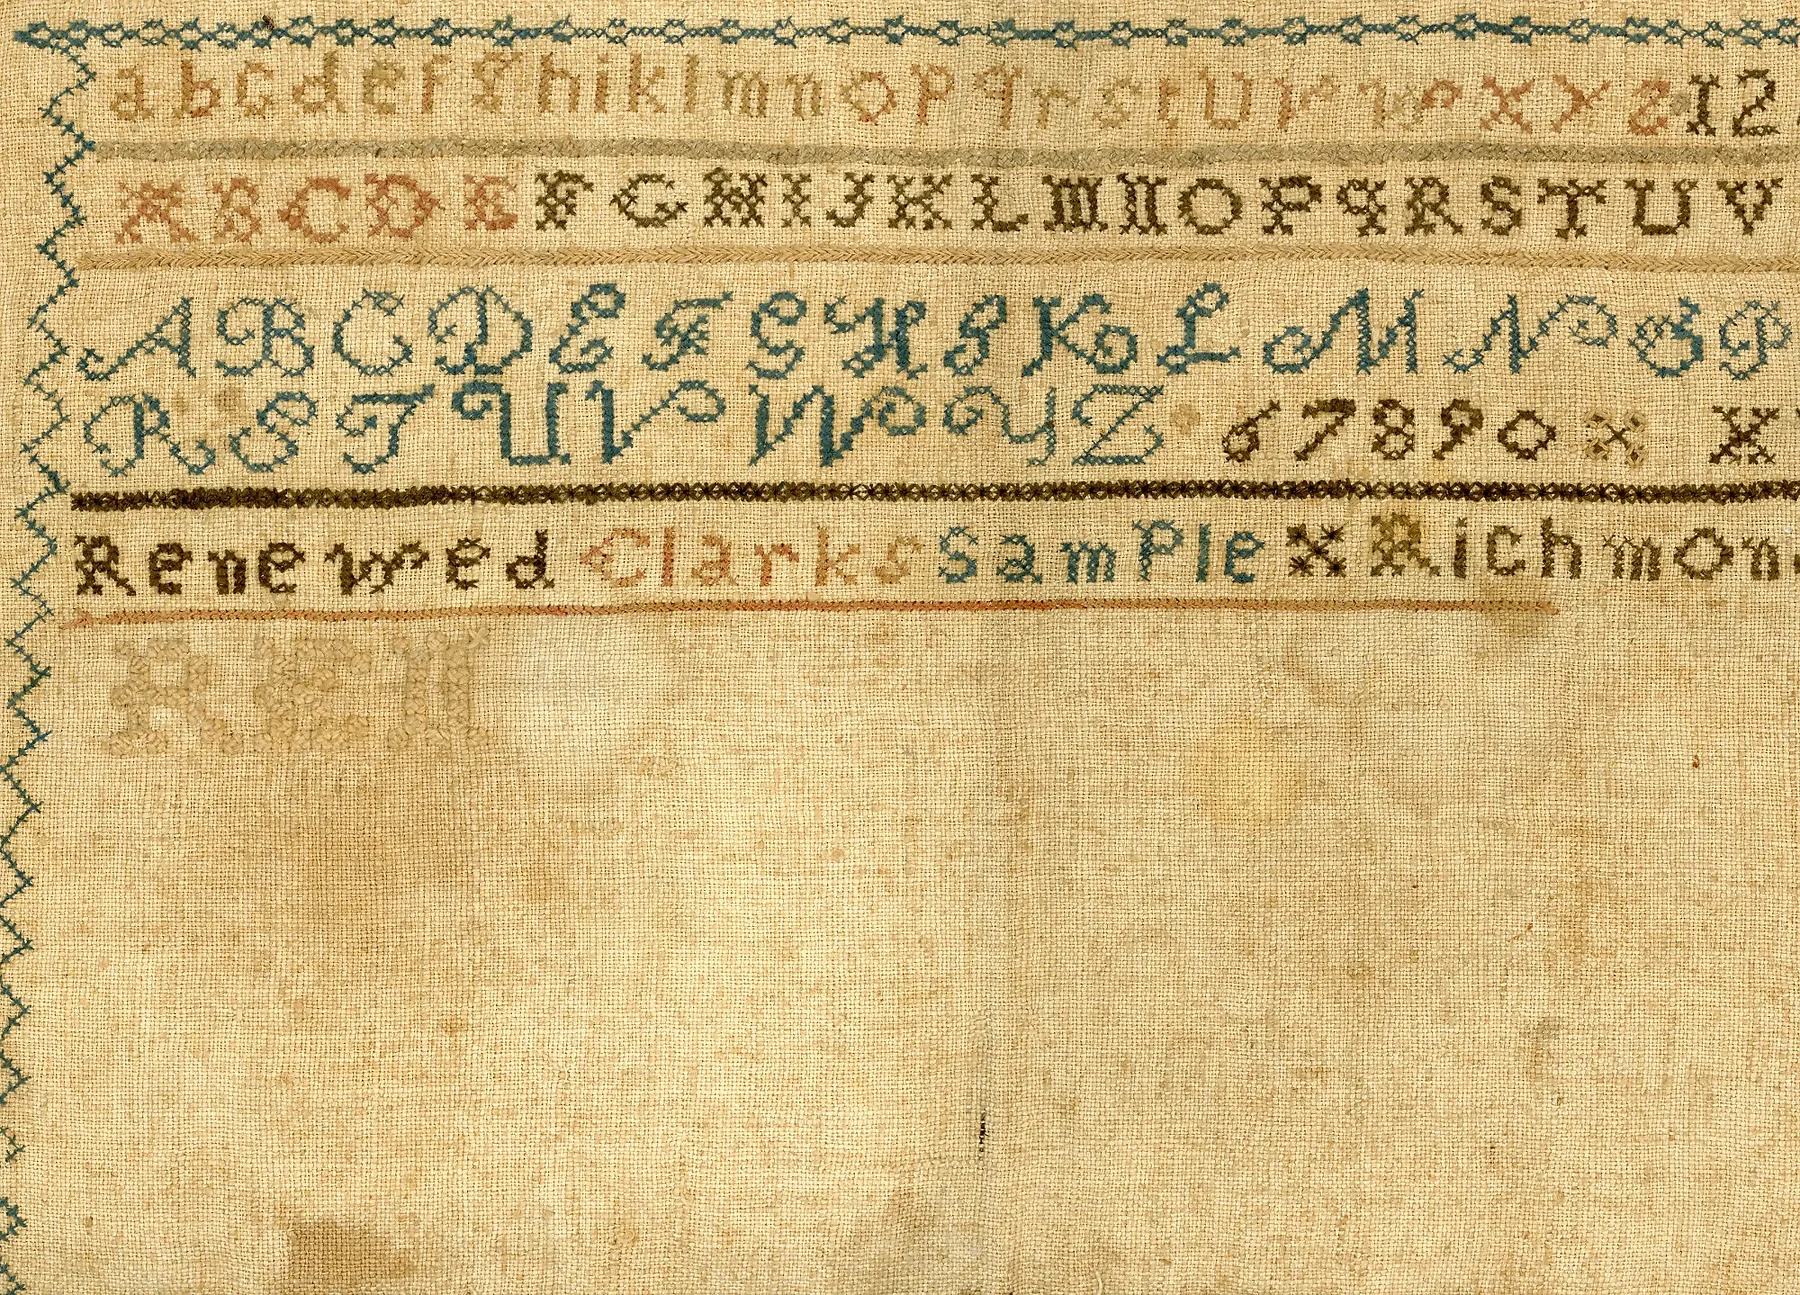 abcdefghiklmnopqrstuvwxyz 12
ABCDEFGHIJKLMNOPqRSTUV
ABCDEFGHIKLMNOP
RSTUVWYZ 67890 X
Renewed Clarks SamPle X Richmon
REN